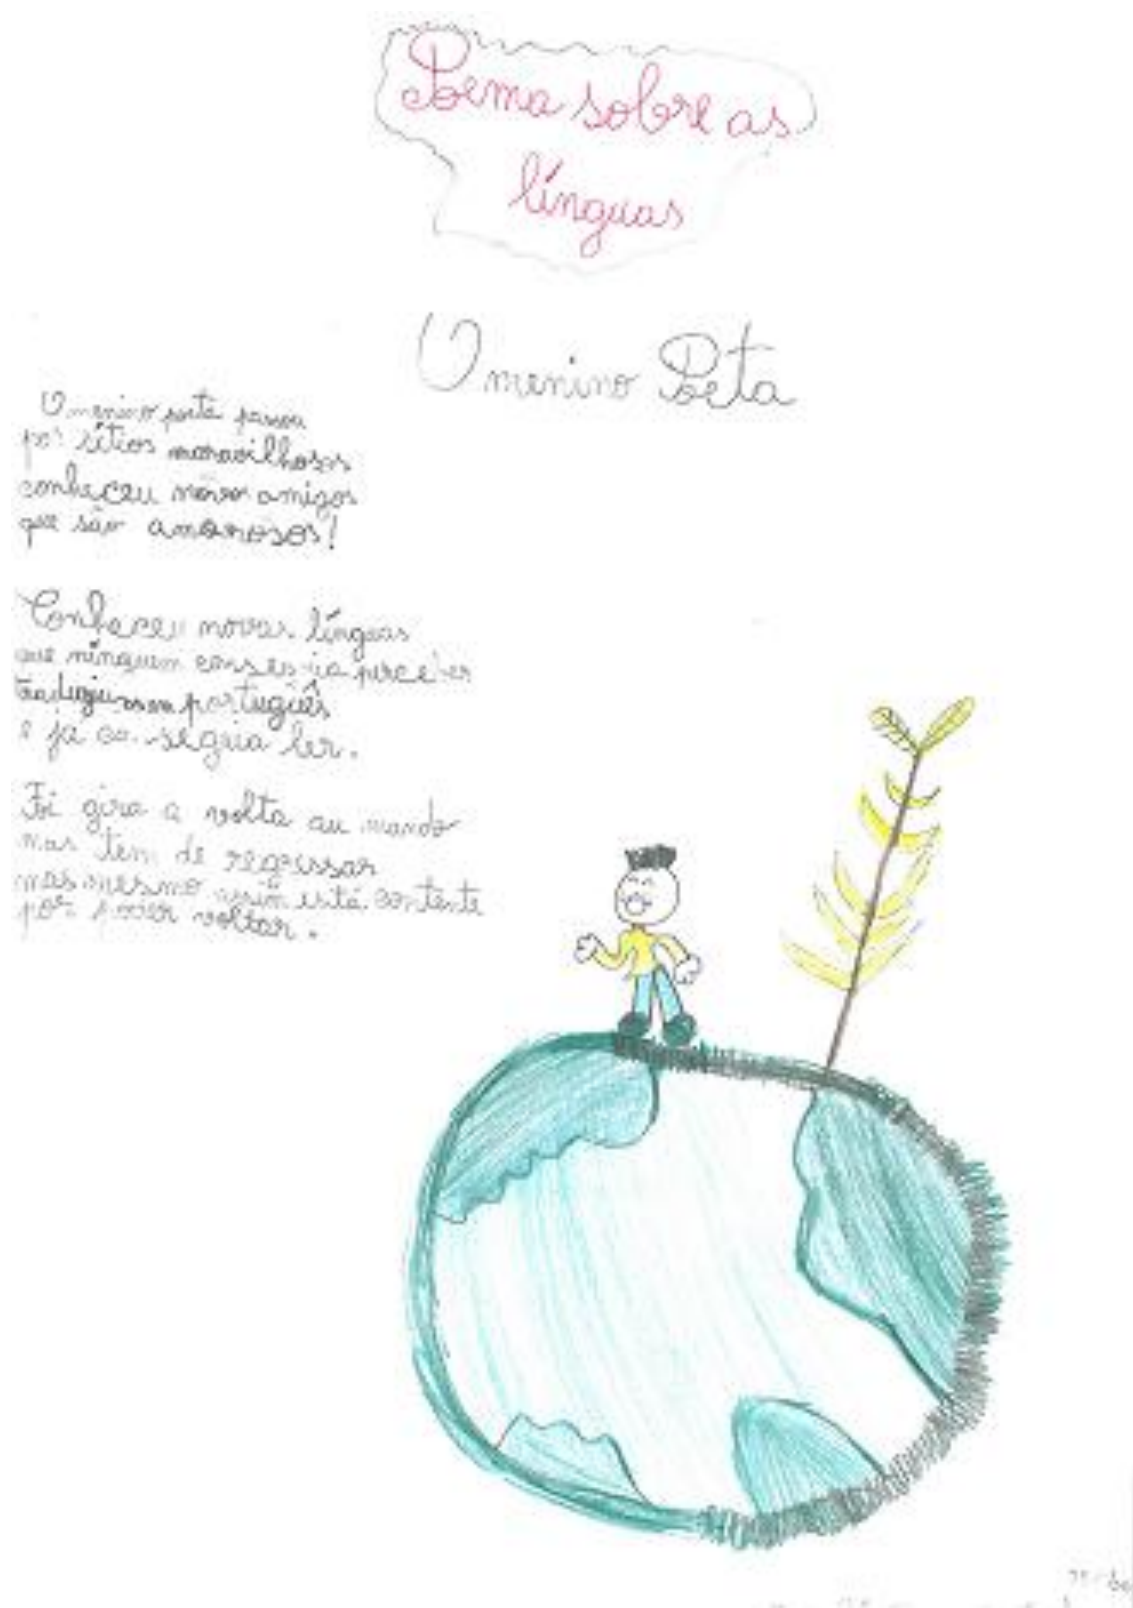 Poema sobre as
línguas
O menino Poeta
O menino poeta passou
por sítios maravilhosos
conheceu novos amigos
que são amorosos!
Conheceu novas línguas
que ninguém conseguia perceber
em português
e já conseguia ler.
Foi gira a volta au mundo
mas tem de regressar
mas mesmo assim está contente
por poder voltar.